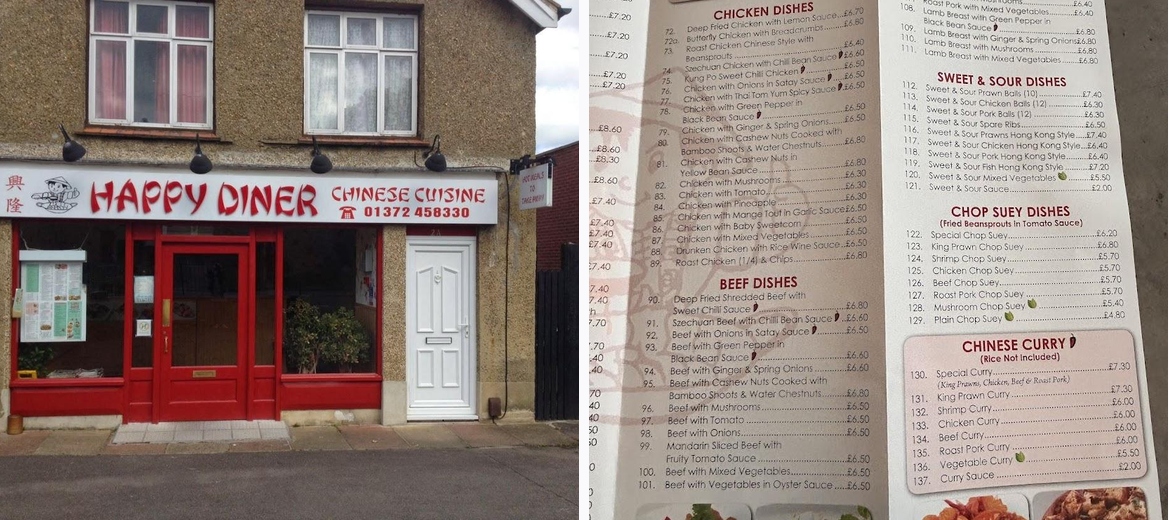 興隆
HAPPY DINER
CHINESE CUISINE
01372 458330
HOT MEALS
TO
TAKE AWAY
£7.20
£7.20
£7.20
£7.20
£8.60
£8.60
£8.30
£8.60
£7.40
£7.40
CHICKEN DISHES
72. Deep Fried Chicken with Lemon Sauce...£6.70
72a. Butterfly Chicken with Breadcrumbt...£6.80
73. Roast Chicken Chinese Style with
Beansprouts...£6.40
74. Szechuan Chicken with Chilli Bean Sauce £6.60
75. Kung Po Sweet Chilli Chicken £6.50
76. Chicken with Onions in Satay Sauce £6.50
77. Chicken with Thai Tom Yum Spicy Sauce £6.50
78. Chicken with Green Pepper in
Black Bean Sauce £6.50
79. Chicken with Ginger & Spring Onions...£6.50
80. Chicken with Cashew Nuts Cooked with
Bamboo Shoots & Water Chestnuts...£6.80
81. Chicken with Cashew Nuts in
Yellow Bean Sauce...£6.80
82. Chicken with Mushrooms...£6.30
83. Chicken with Tomato...£6.30
84. Chicken with Pineapple...£6.30
85. Chicken with Mange Tout in Garlic Sauce £6.50
86. Chicken with Baby Sweetcorn...£6.50
87. Chicken with Mixed Vegetables...£6.30
88. Drunken Chicken with Rice Wine Sauce...£6.50
89. Roast Chicken (1/4) & Chips...£6.80
BEEF DISHES
90. Deep Fried Shredded Beef with
Sweet Chilli Sauce £6.80
91. Szechuan Beef with Chilli Bean Sauce £6.60
92. Beef with Onions in Satay Sauce £6.50
93. Beef with Green Pepper in
Black Bean Sauce £6.60
94. Beef with Ginger & Spring Onions...£6.60
95. Beef with Cashew Nuts Cooked with
Bamboo Shoots & Water Chestnuts...£6.80
96. Beef with Mushrooms...£6.50
97. Beef with Tomato...£6.50
98. Beef with Onions...£6.50
99. Mandarin Sliced Beef with
Fruity Tomato Sauce...£6.50
100. Beef with Mixed Vegetables...£6.50
101. Beef with Vegetables in Oyster Sauce...£6.50
Roast Pork with Mixed Vegetables...£6.40
108. Lamb Breast with Green Pepper in
Black Bean Sauce £6.80
109. Lamb Breast with Ginger & Spring Onions £6.80
110. Lamb Breast with Mushrooms...£6.80
111. Lamb Breast with Mixed Vegetables...£6.80
SWEET & SOUR DISHES
112. Sweet & Sour Prawn Balls (10)...£7.40
113. Sweet & Sour Chicken Balls (12)...£6.30
114. Sweet & Sour Pork Balls (12)...£6.30
115. Sweet & Sour Spare Ribs...£6.50
116. Sweet & Sour Prawns Hong Kong Style...£7.40
117. Sweet & Sour Chicken Hong Kong Style...£6.40
118. Sweet & Sour Pork Hong Kong Style...£6.40
119. Sweet & Sour Fish Hong Kong Style...£7.20
120. Sweet & Sour Mixed Vegetables £5.50
121. Sweet & Sour Sauce...£2.00
CHOP SUEY DISHES
(Fried Beansprouts in Tomato Sauce)
122. Special Chop Suey...£6.20
123. King Prawn Chop Suey...£6.80
124. Shrimp Chop Suey...£5.70
125. Chicken Chop Suey...£5.70
126. Beef Chop Suey...£5.70
127. Roast Pork Chop Suey...£5.70
128. Mushroom Chop Suey £5.40
129. Plain Chop Suey £4.80
CHINESE CURRY
(Rice Not Included)
130. Special Curry...£7.30
(King Prawns, Chicken, Beef & Roast Pork)
131. King Prawn Curry...£7.30
132. Shrimp Curry...£6.00
133. Chicken Curry...£6.00
134. Beef Curry...£6.00
135. Roast Pork Curry...£6.00
136. Vegetable Curry £5.50
137. Curry Sauce...£2.00